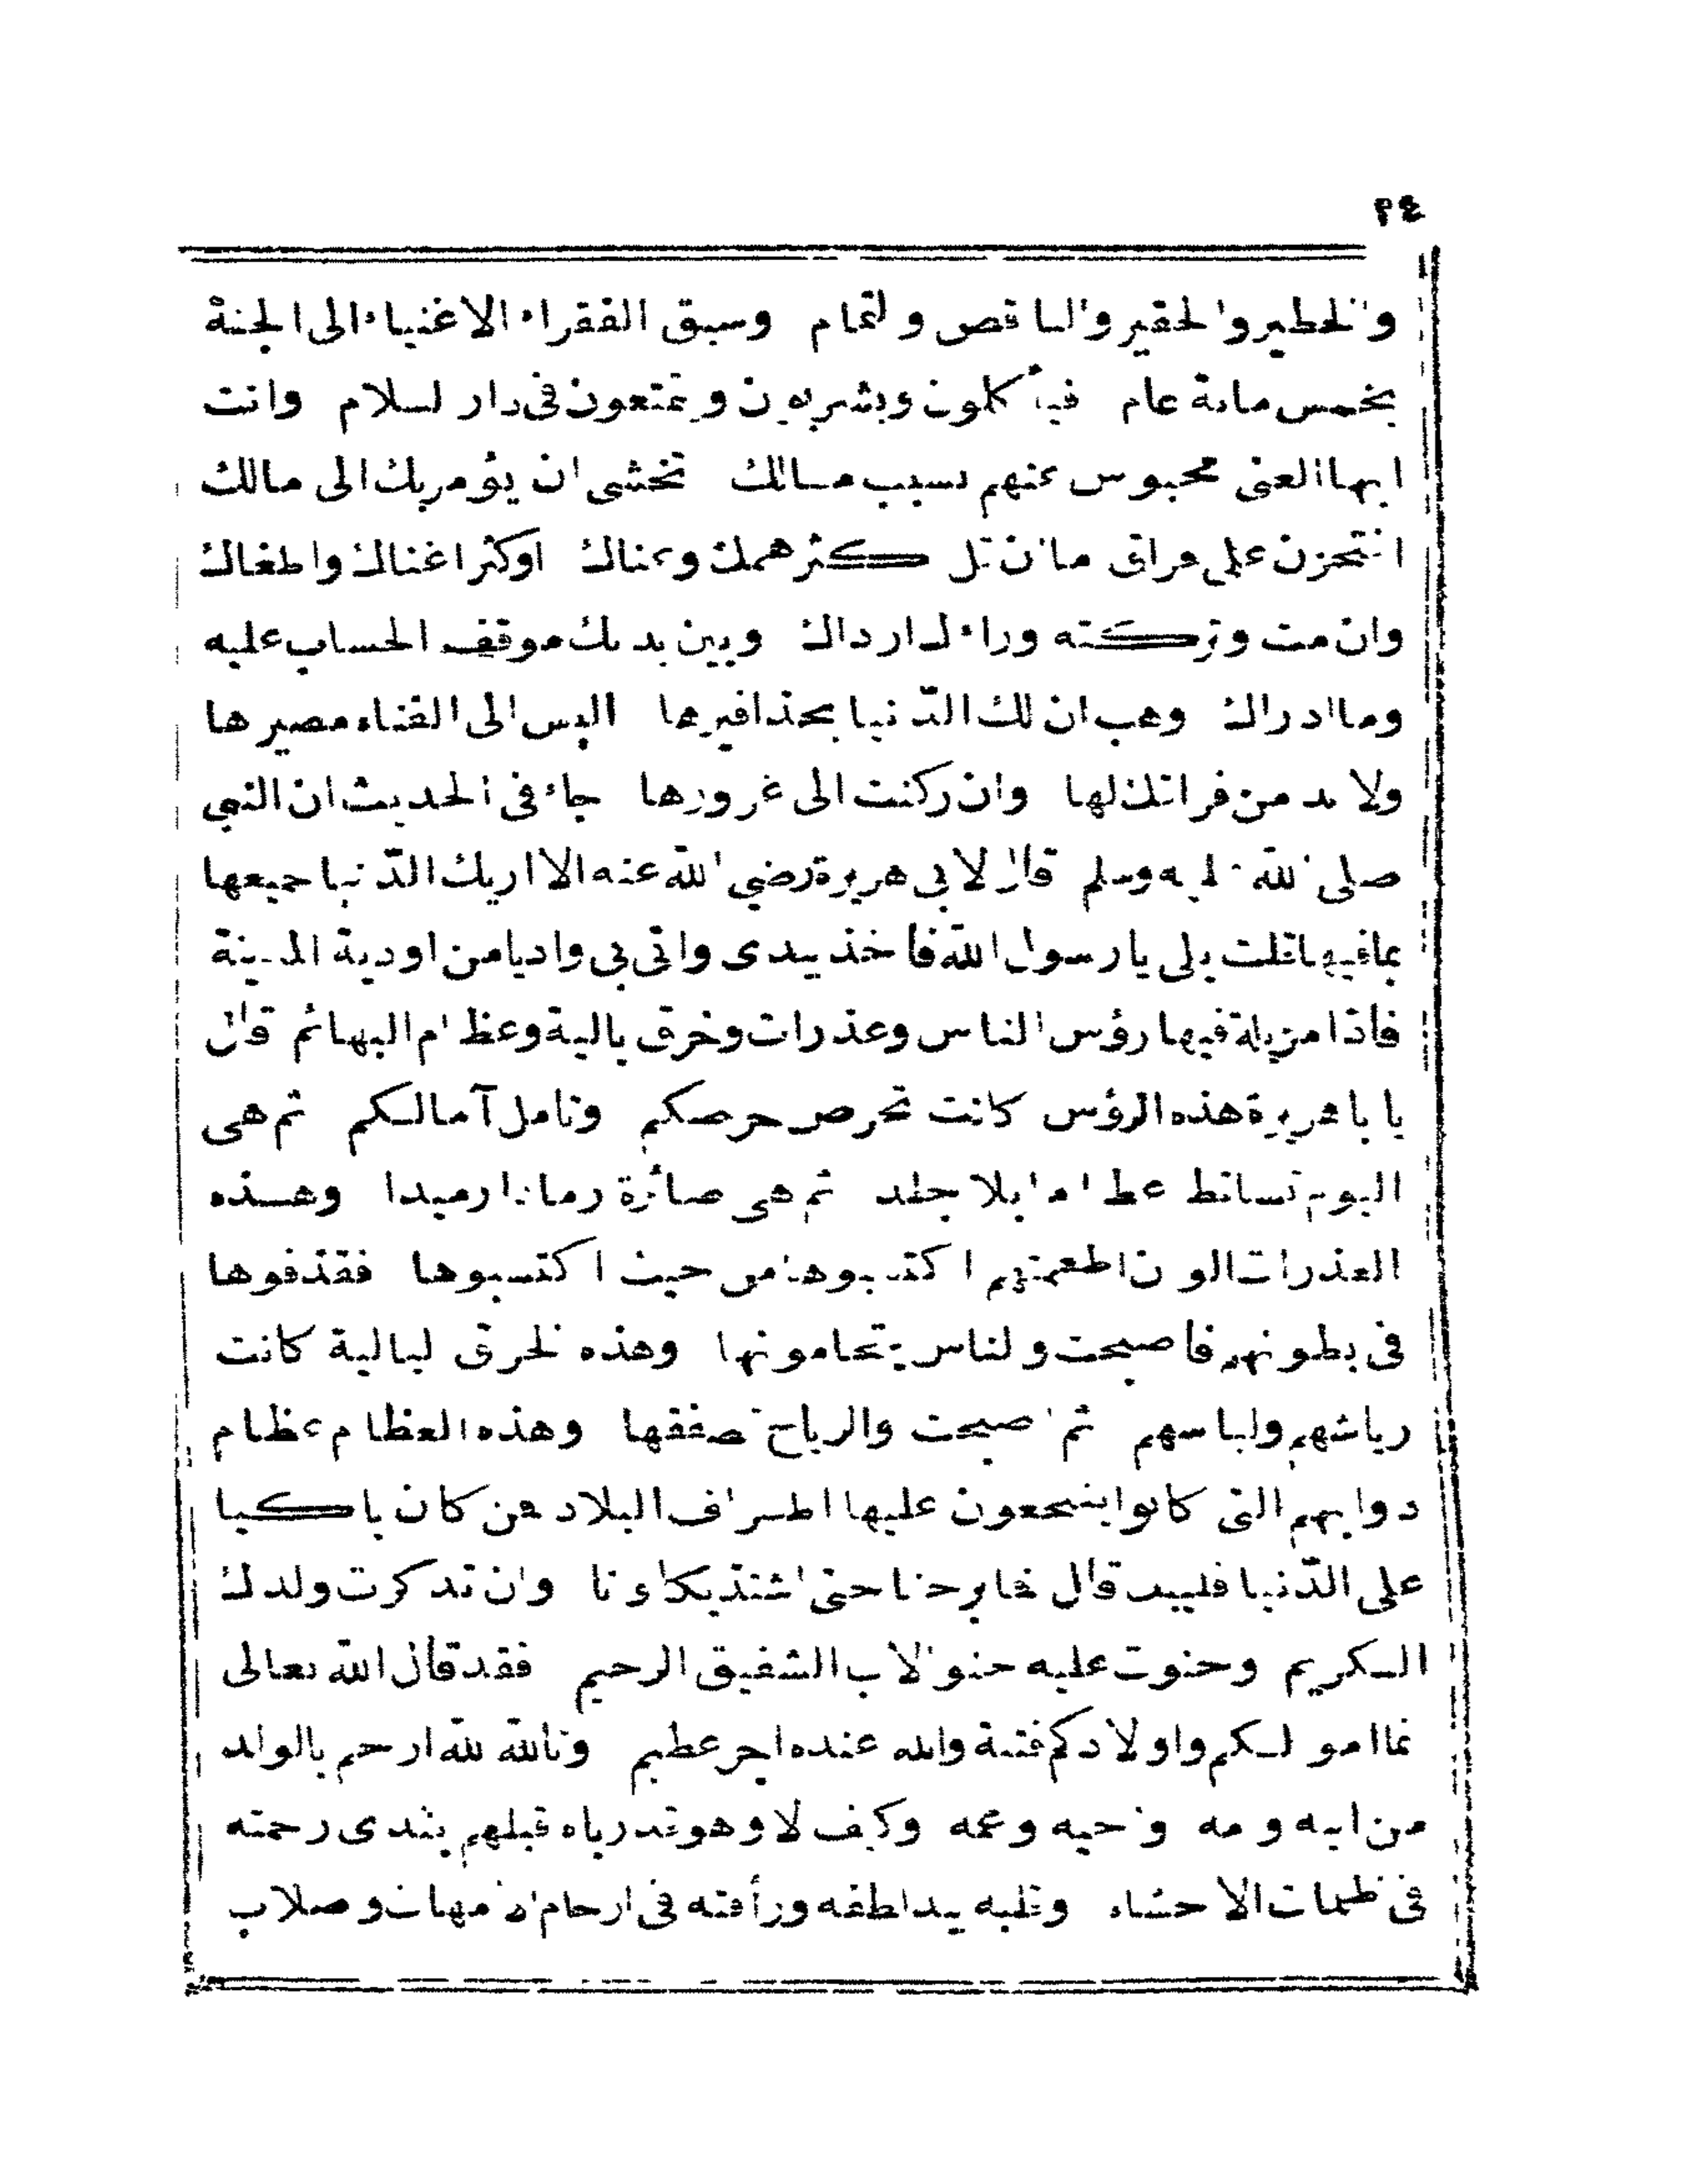 ٢٤
والخطير والحقير والناقص والتمام وسبق الفقراء الاغنياء الى الجنة
بخمس مائة عام فيأكلون ويشربون ويتمتعون فى دار السلام وانت
ايها الغنى محبوس عنهم بسبب مالك تخشى ان يؤمر بك الى مالك
اتحزن على فراق ما ان قل كثر همك وعناك اوكثر اغناك واطغاك
وان مت وتركته وراءك ارداك وبين يديك موقف الحساب عليه
وما ادراك وهب ان لك الدّنيا بحذافيرها اليس الى الفناء مصيرها
ولا بد من فراقك لها وان ركنت الى غرورها جاء فى الحديث ان النبي
صلى الله عليه وسلم قال لابي هريرة رضي الله عنه الا اريك الدّنيا جميعها
بمافيها قلت بلى يا رسول الله فاخذ بيدى واتى بي واديا من اودية المدينة
فاذا مزبلة فيها رؤس الناس وعذرات وخرق بالية وعظام البهائم قال
يا باهريرة هذه الرؤس كانت تحرص حرصكم وتامل آمالكم ثم هى
اليوم تساقط عظاما بلا جلد ثم هى صائرة رمادا رميدا وهذه
العذرات الوان اطعمتهم اكتسبوها من حيث اكتسبوها فقذفوها
فى بطونهم فاصبحت والناس يتحامونها وهذه الخرق البالية كانت
رياشهم ولباسهم ثم اصبحت والرياح تصفقها وهذه العظام عظام
دوابهم التى كانوا ينتجعون عليها اطراف البلاد فمن كان باكيا
على الدّنيا فليبك قال فما برحنا حتى اشتد بكاؤنا وان تذكرت ولدك
الكريم وحنوت عليه حنو الاب الشفيق الرحيم فقد قال الله تعالى
انما اموالكم واولادكم فتنة والله عنده اجر عظيم وتالله لله ارحم بالولد
من ابيه وامه واخيه وعمه وكيف لا وهو قد رباه قبلهم بثدى رحمته
فى ظلمات الاحشاء وقلبه بيد لطفه ورأفته فى ارحام الامهات وصلاب